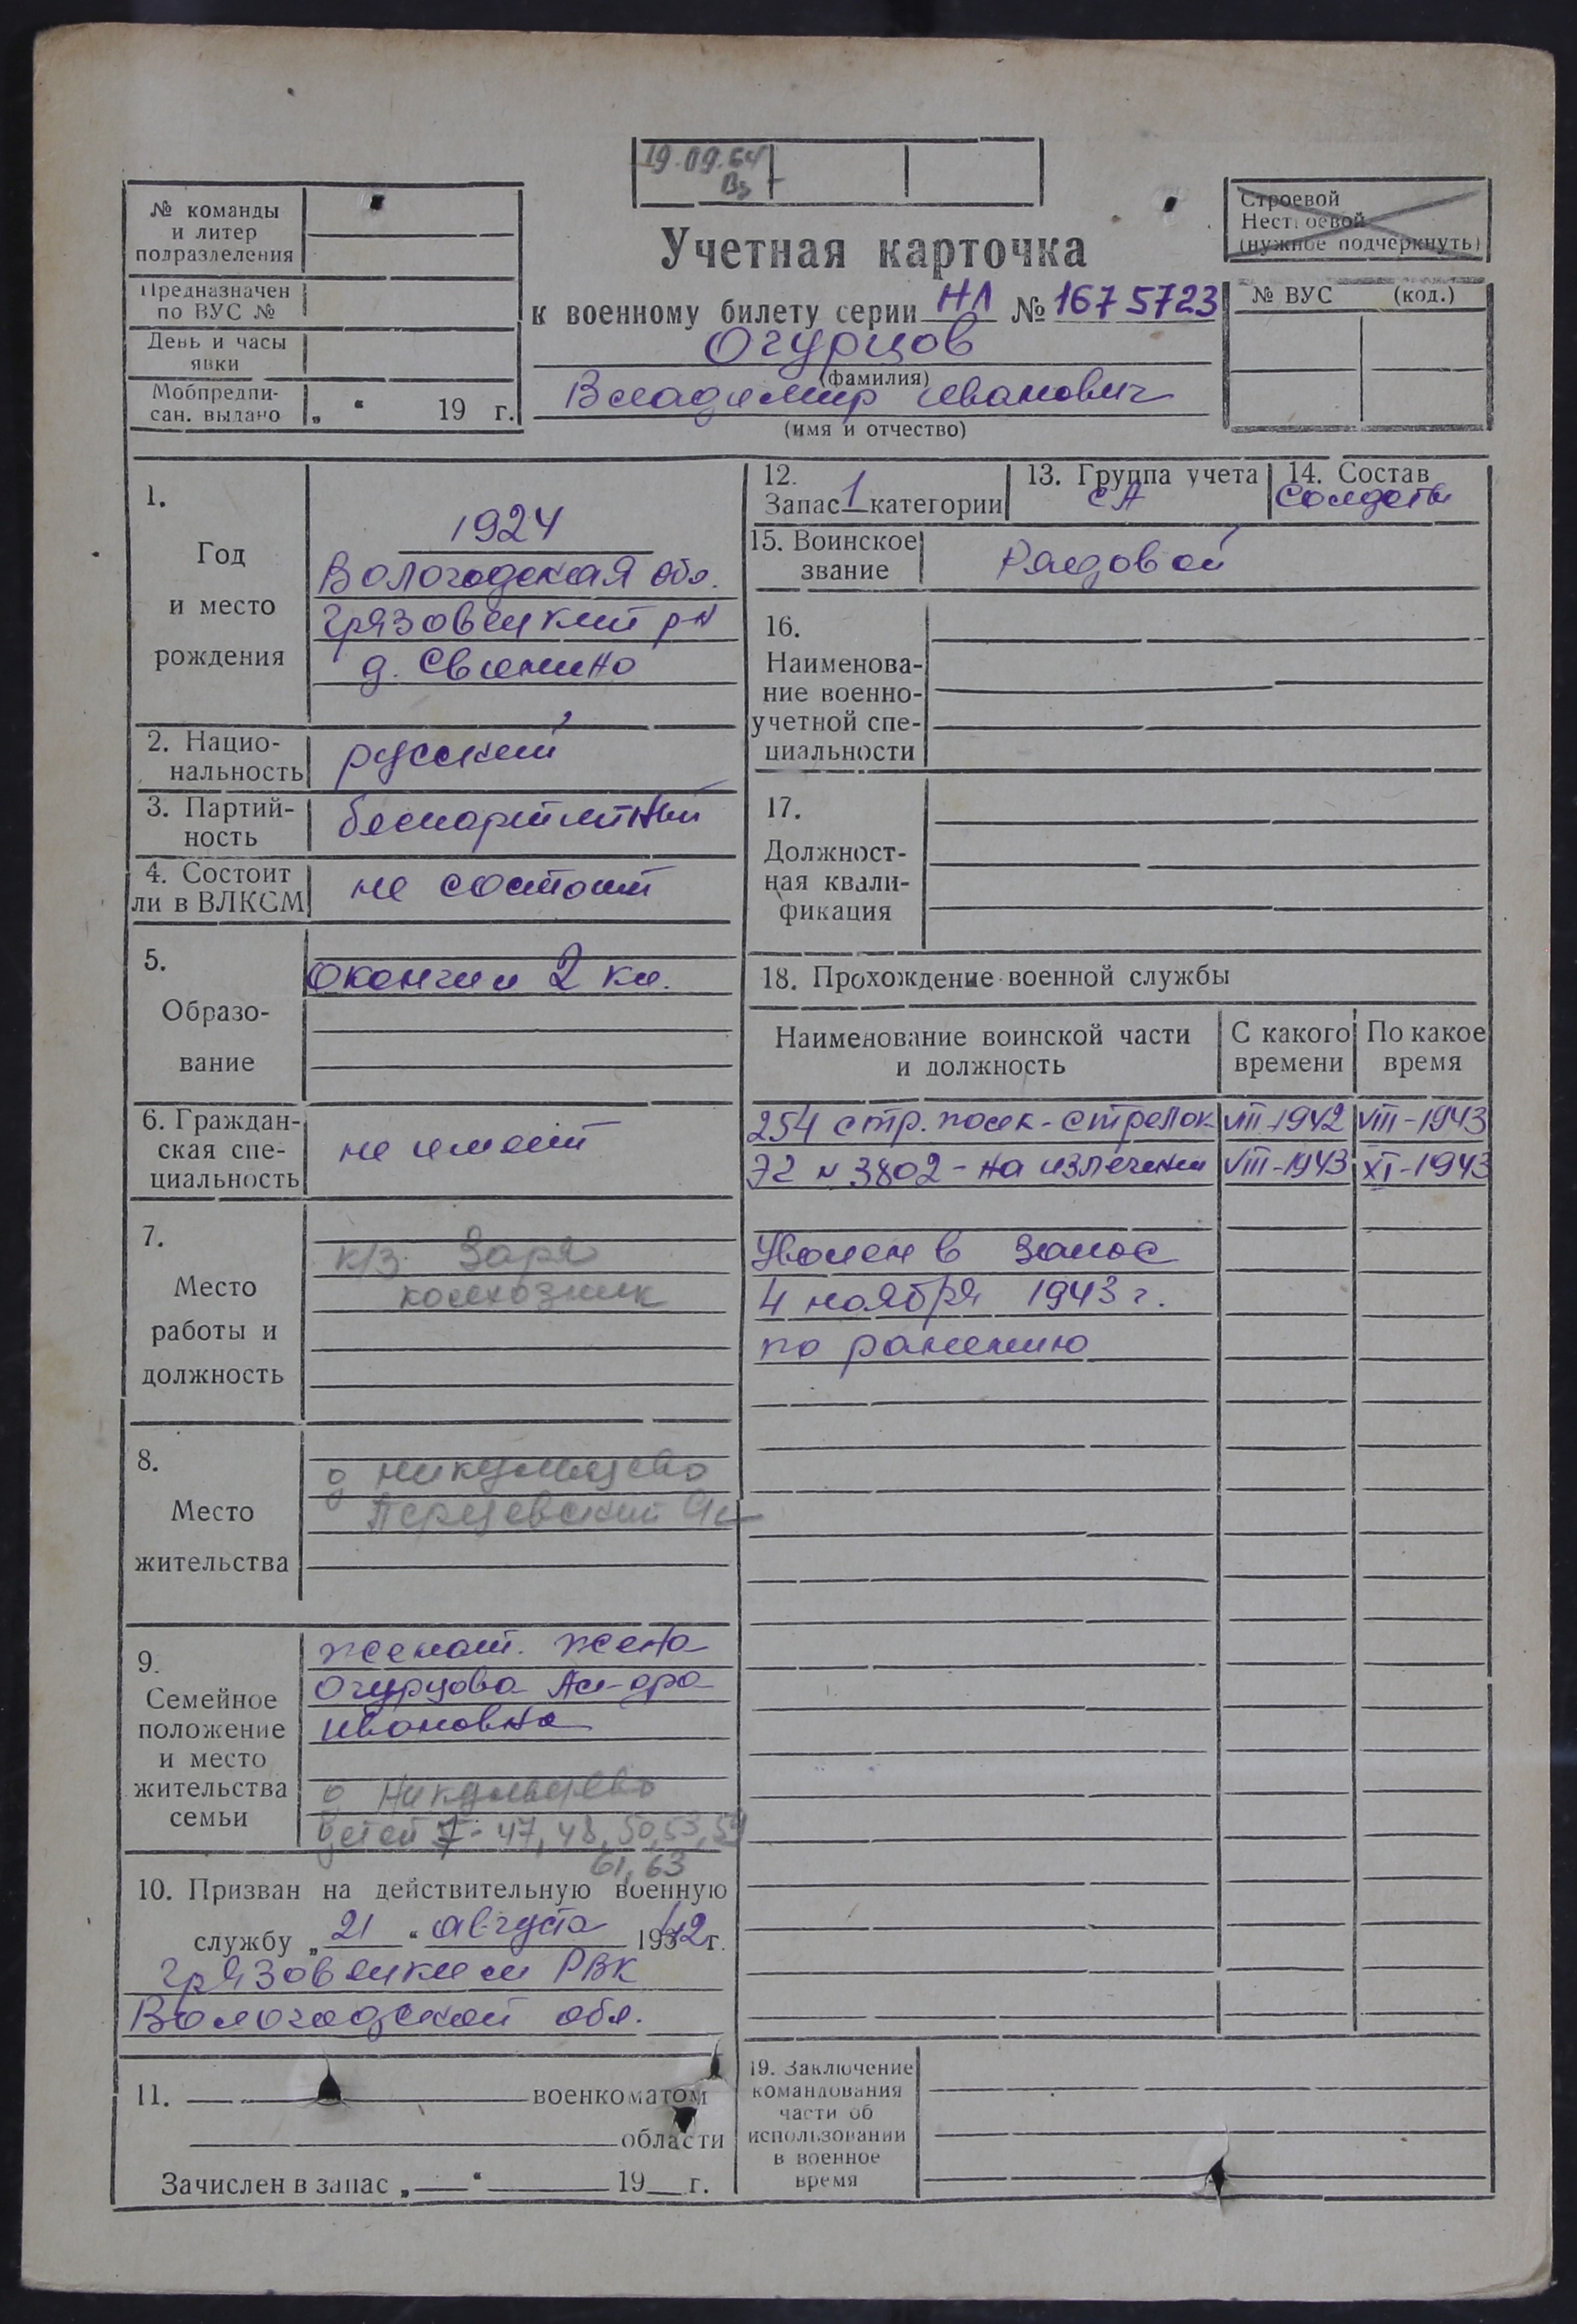 19.09.64
№ команды
и литер
подразделения
Предназначен
по ВУС №
День и часы
явки
Мобпредпи-
сан. выдано „ “ 19 г.
Учетная карточка
к военному билету серии НЛ № 1675723
Огурцов
(фамилия)
Владимир Иванович
(имя и отчество)
Строевой
Нестроевой
(нужное подчеркнуть)
№ ВУС (код.)
1.
Год
и место
рождения
1924
Вологодская обл.
Грязовецкий р-н
д. Свинино
2. Нацио-
нальность
русский
3. Партий-
ность
беспартийный
4. Состоит
ли в ВЛКСМ
не состоит
5.
Образо-
вание
Окончил 2 кл.
6. Граждан-
ская спе-
циальность
не имеет
7.
Место
работы и
должность
к/з Заря
колхозник
8.
Место
жительства
д
9.
Семейное
положение
и место
жительства
семьи
женат. жена
Огурцова Ал-дра
Ивановна
д
детей 7- 47, 48, 50, 53, 59
61, 63
10. Призван на действительную военную
службу „21“ августа 1942г.
Грязовецким РВК
Вологодской обл.
11. военкоматом
области
Зачислен в запас „ “ 19 г.
12.
Запас 1 категории
13. Группа учета
СА
14. Состав
Солдаты
15. Воинское
звание
Рядовой
16.
Наименова-
ние военно-
учетной спе-
циальности
17.
Должност-
ная квали-
фикация
18. Прохождение военной службы
Наименование воинской части
и должность
С какого
времени
По какое
время
254 стр. полк - стрелок VIII-1942 VIII-1943
ЭГ № 3802 - на излечении VIII-1943 XI-1943
Уволен в запас
4 ноября 1943 г.
по ранению
19. Заключение
командования
части об
использовании
в военное
время